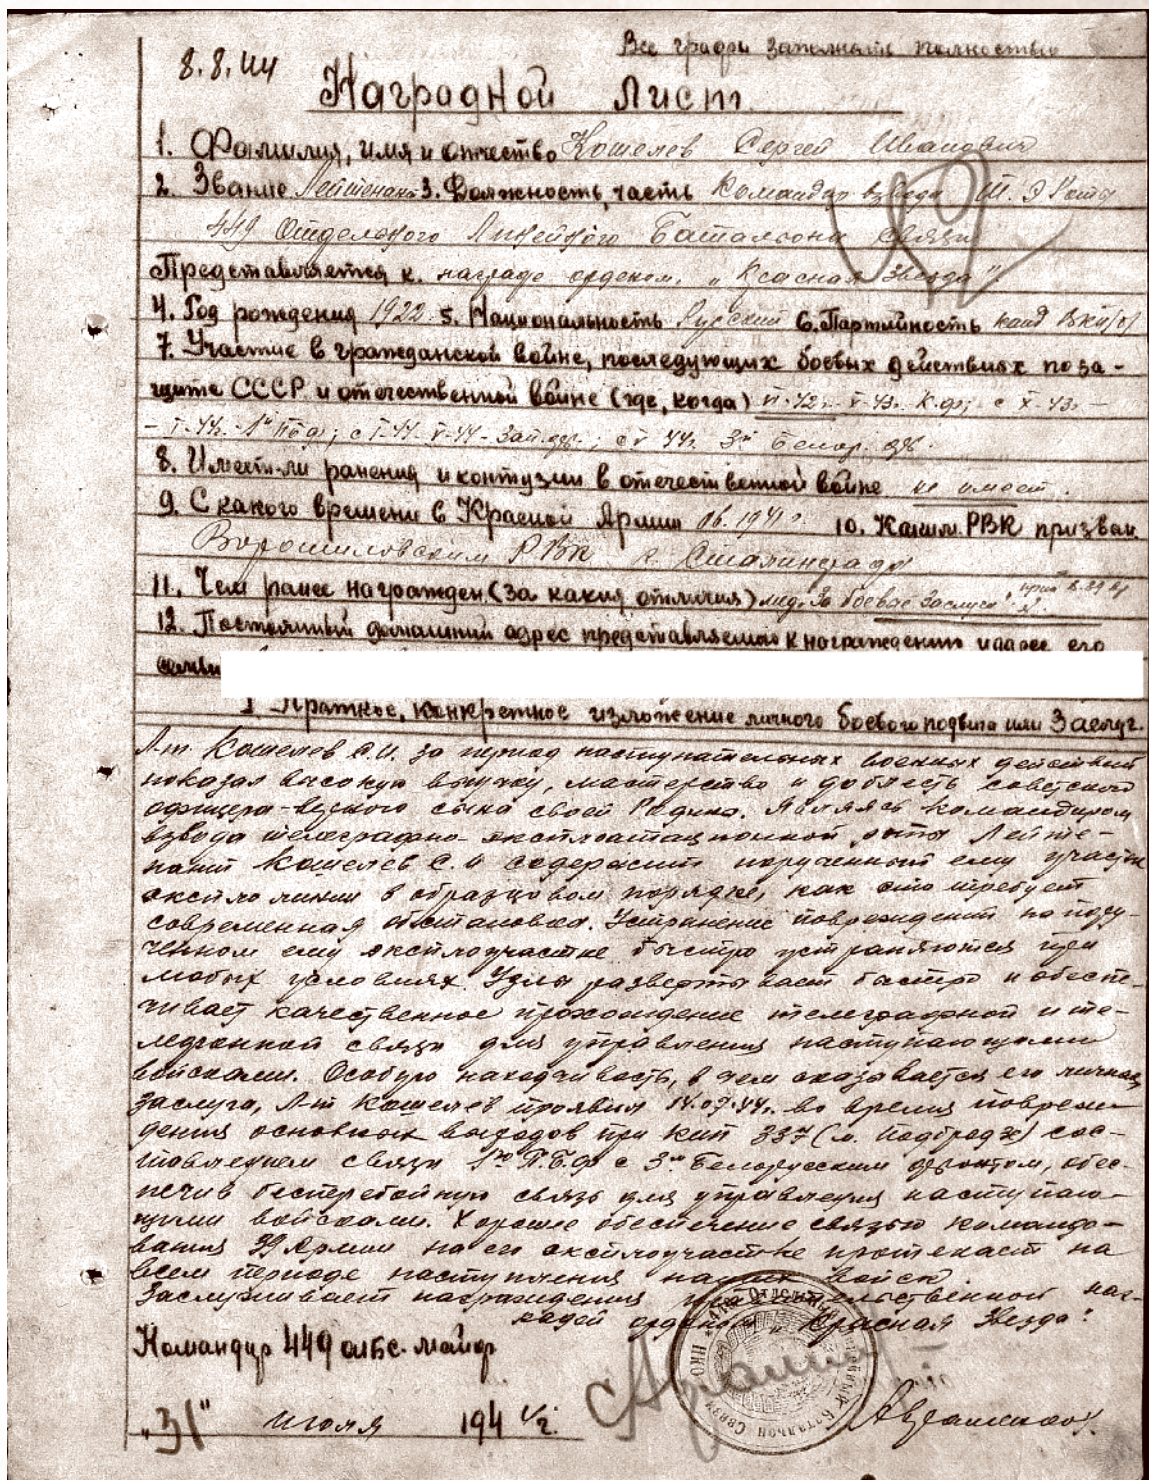 Все графы заполнять полностью
8.8.44
Наградной лист
1. Фамилия, имя и отчество Кошелев Сергей Иванович
2. Звание Лейтенант 3. Должность, часть Командир взвода Т.Э Роты
449 Отдельного Линейного Батальона связи
Представляется к награде орденом „Красная Звезда"
4. Год рождения 1922 5. Национальность Русский 6. Партийность канд ВКП(б)
7. Участие в гражданской войне, последующих боевых действиях по за-
щите СССР и отечественной войне (где, когда) VI-42г. V-43г. К.ф; с X-43г. –
– I-44г. 1й Пб ф; с I-44 V-44 - Зап. ; с V 44г. 3й Белор.
8. Имеет-ли ранения и контузии в отечественной войне не имеет.
9. С какого времени в Красной Армии 06.1941г. 10. Каким РВК призван
Ворошиловским РВК г. Сталинграда
11. Чем ранее награжден (за какия отличия) мед. „За боевые Заслуги"
12. Постоянный домашний адрес представляемого к награждению и адрес его
семьи
I. Краткое, конкретное изложение личного боевого подвига или Заслуг.
Л-т Кошелев С.И. за период наступательных военных действий
показал высокую выучку, мастерство и доблесть советского
офицера - верного сына своей Родины. Являясь командиром
взвода телеграфно-эксплоатационной роты Лейте-
нант Кошелев С.И содержит порученный ему участок
экспло линии в образцовом порядке, как это требует
современная обстановка. Устранение повреждений на пору-
ченном ему эксплоучастке быстро устраняются при
любых условиях. Узлы развертывает быстро и обеспе-
чивает качественное прохождение телеграфной и те-
лефонной связи для управления наступающими
войсками. Особую находчивость, в чем сказывается его личная
заслуга, Л-т Кошелев проявил 14.07.44г. во время повреж-
дения основных выходов при кип 337 (м. Подгродзь) сос-
тавлением связи 1го П.Б.Ф с 3м Белорусским фронтом, обес-
печив бесперебойную связь для управления наступаю-
щими войсками. Хорошее обеспечение связью командо-
вания 39 Армии на его эксплоучастке протекает на
всем периоде наступления наших войск.
Заслуживает награждения правительственной наг-
радой орденом „Красная Звезда".
Командир 449 олбс. майор
„31" июля 1944г.